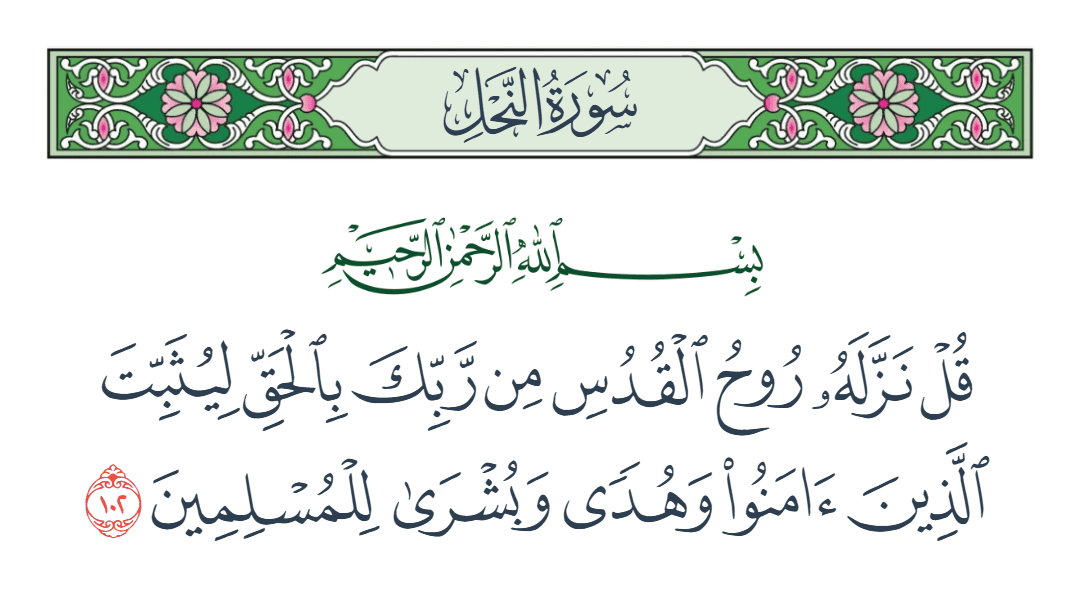 سُورَةُ النَّحْلِ
بِسْمِ ٱللَّهِ ٱلرَّحْمَٰنِ ٱلرَّحِيمِ
قُلْ نَزَّلَهُۥ رُوحُ ٱلْقُدُسِ مِن رَّبِّكَ بِٱلْحَقِّ لِيُثَبِّتَ
ٱلَّذِينَ ءَامَنُوا۟ وَهُدًى وَبُشْرَىٰ لِلْمُسْلِمِينَ ١٠٢